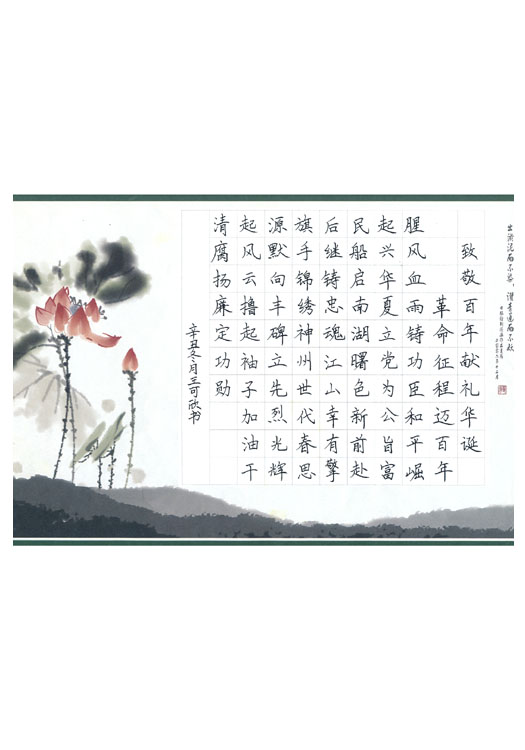 出淤泥而不染，濯青莲而不妖
致敬百年献礼华诞
革命征程迈百年
腥风血雨铸功臣和平崛
起兴华夏立党为公旨富
民船启南湖曙色新前赴
后继铸忠魂江山幸有擎
旗手锦绣神州世代春思
源默向丰碑立先烈光辉
起风云撸起袖子加油干
清腐扬廉定功勋
辛丑冬月王可欣书